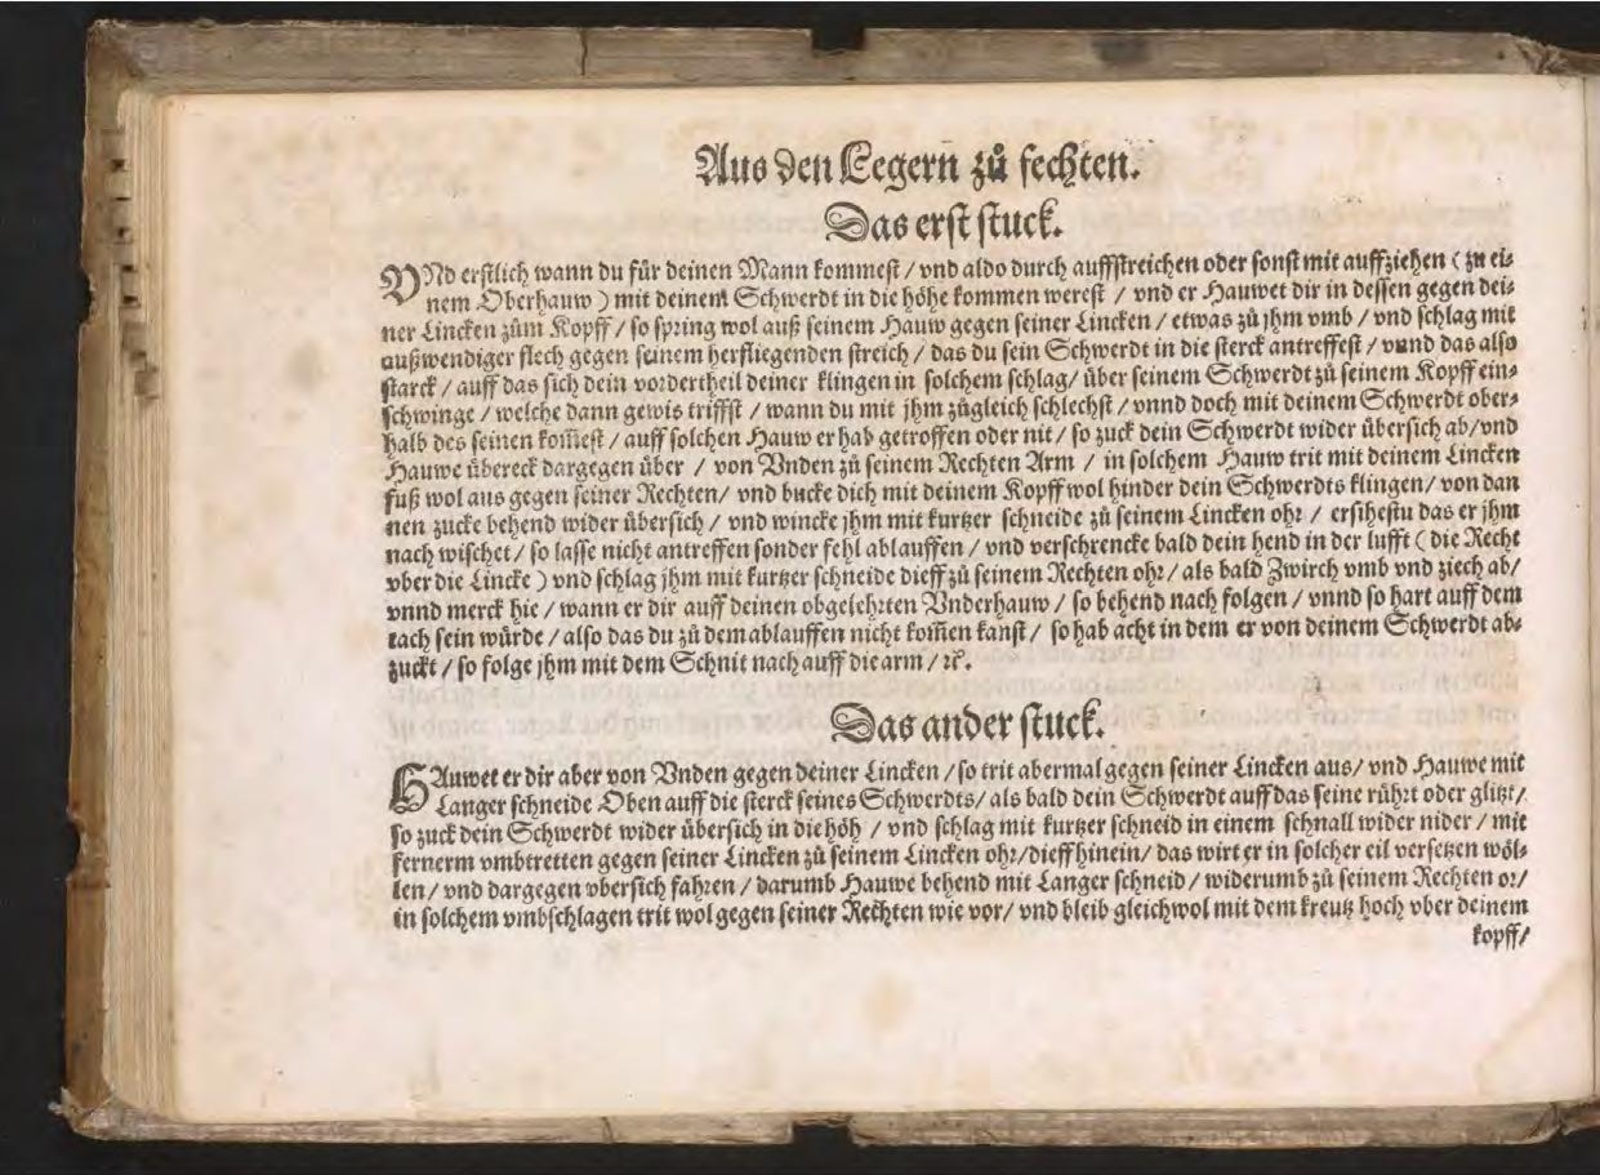 Aus den Legern zů fechten.
Das erst stuck.
VNd erstlich wann du für deinen Mann kommest / vnd aldo durch auffstreichen oder sonst mit auffziehen ( zu ei⸗
nem Oberhauw ) mit deinem Schwerdt in die höhe kommen werest / vnd er Hauwet dir in dessen gegen dei⸗
ner Lincken zům Kopff / so spring wol auß seinem Hauw gegen seiner Lincken / etwas zů jhm vmb / vnd schlag mit
außwendiger flech gegen seinem herfliegenden streich / das du sein Schwerdt in die sterck antreffest / vnnd das also
starck / auff das sich dein vordertheil deiner klingen in solchem schlag/ über seinem Schwerdt zů seinem Kopff ein⸗
schwinge / welche dann gewis triffst / wann du mit jhm zůgleich schlechst / vnnd doch mit deinem Schwerdt ober⸗
halb des seinen kom̃est / auff solchen Hauw er hab getroffen oder nit / so zuck dein Schwerdt wider übersich ab/vnd
Hauwe übereck dargegen über / von Vnden zů seinem Rechten Arm / in solchem Hauw trit mit deinem Lincken
fuß wol aus gegen seiner Rechten/ vnd bucke dich mit deinem Kopff wol hinder dein Schwerdts klingen/ von dan
nen zucke behend wider übersich / vnd wincke jhm mit kurtzer schneide zů seinem Lincken ohr / ersihestu das er jhm
nach wischet / so lasse nicht antreffen sonder fehl ablauffen / vnd verschrencke bald dein hend in der lufft ( die Recht
vber die Lincke ) vnd schlag jhm mit kurtzer schneide dieff zů seinem Rechten ohr / als bald Zwirch vmb vnd ziech ab/
vnnd merck hie / wann er dir auff deinen obgelehrten Vnderhauw / so behend nach folgen / vnnd so hart auff dem
tach sein würde / also das du zů dem ablauffen nicht kom̃en kanst / so hab acht in dem er von deinem Schwerdt ab⸗
zuckt / so folge jhm mit dem Schnit nach auff die arm / ꝛc.
Das ander stuck.
HAuwet er dir aber von Vnden gegen deiner Lincken / so trit abermal gegen seiner Lincken aus/ vnd Hauwe mit
Langer schneide Oben auff die sterck seines Schwerdts/ als bald dein Schwerdt auff das seine rührt oder glitzt/
so zuck dein Schwerdt wider übersich in die höh / vnd schlag mit kurtzer schneid in einem schnall wider nider / mit
fernerm vmbtretten gegen seiner Lincken zů seinem Lincken ohr/dieff hinein/ das wirt er in solcher eil versetzen wöl⸗
len/ vnd dargegen vbersich fahren / darumb Hauwe behend mit Langer schneid / widerumb zů seinem Rechten or/
in solchem vmbschlagen trit wol gegen seiner Rechten wie vor/ vnd bleib gleichwol mit dem kreutz hoch vber deinem
kopff/